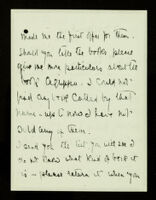 made me the first offer for them.
Should you like the books please
give me more particulars about the
book Agrippa. I could not
find any book called by that
name - up to now I have not
sold any of them.
I send you the list you will see I
do not know what kind of book it
is - please return it when you